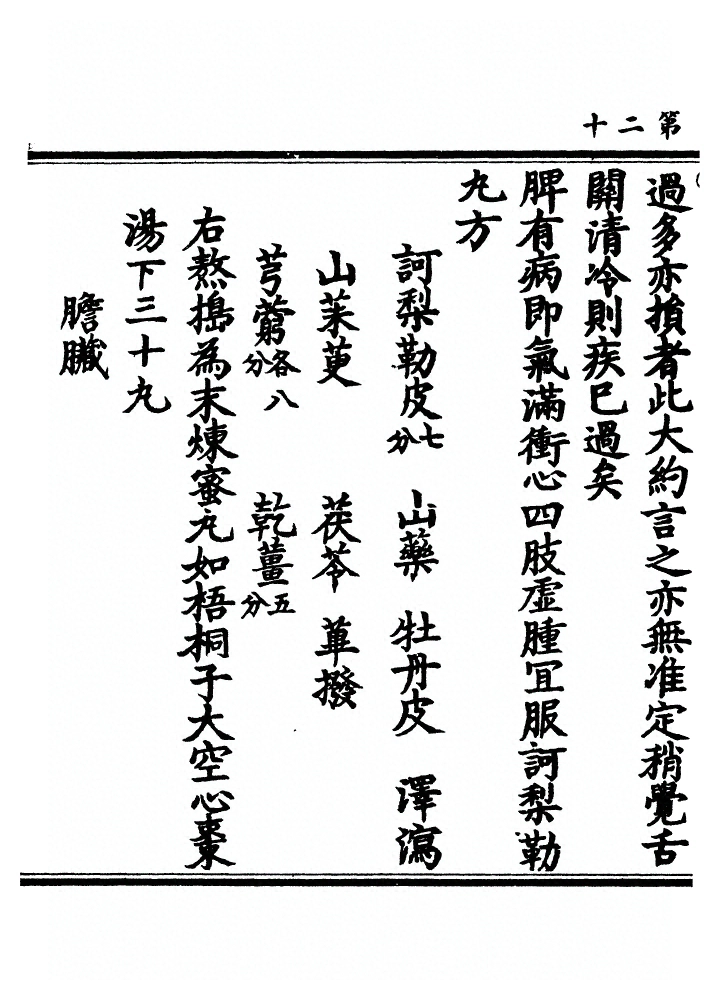 第二十
過多亦損者此大約言之亦無准定稍覺舌
關清冷則疾已過矣
脾有病即氣滿衝心四肢虛腫宜服訶梨勒
丸方
訶梨勒皮七分 山藥 牡丹皮 澤瀉
山茱萸 茯苓 蓽撥
芎藭各八分 乾薑五分
右熬搗為末煉蜜丸如梧桐子大空心棗
湯下三十丸
膽臟